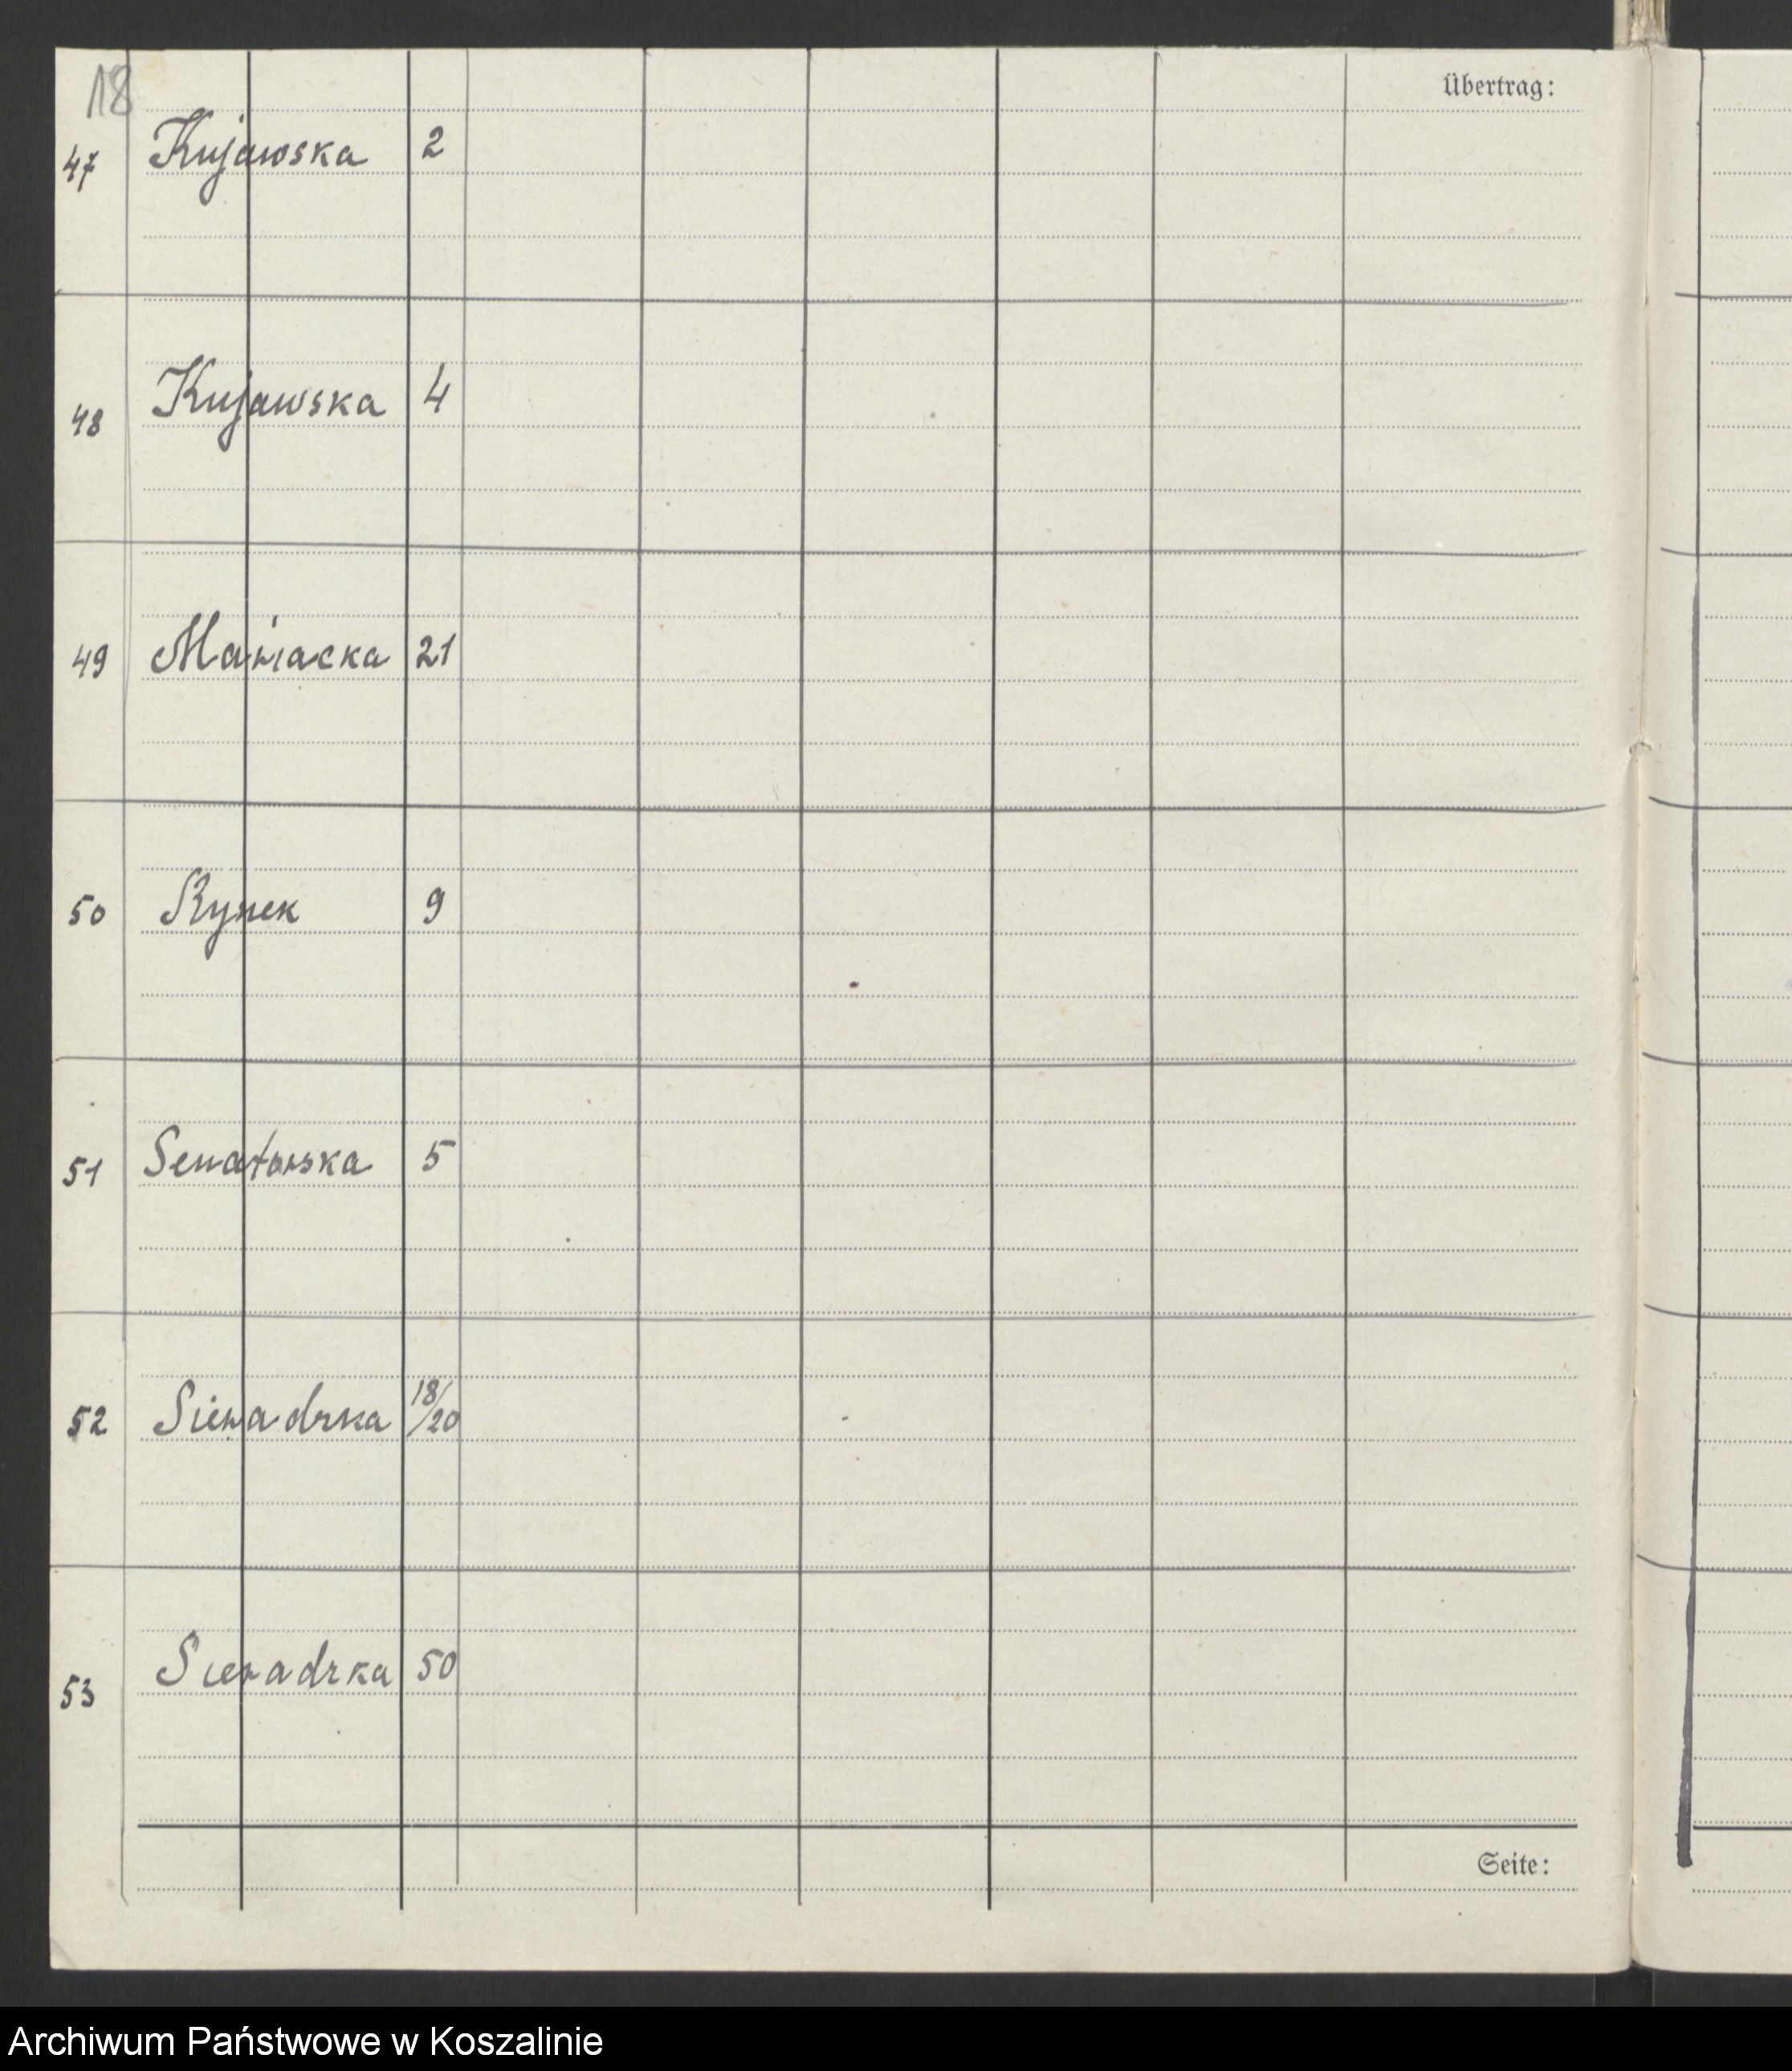 18
Übertrag:
47 Kujawska 2
48 Kujawska 4
49 Mariacka 21
50 Rynek 9
51 Senatorska 5
52 Sieradzka 18/20
53 Sieradzka 50
Seite:
Archiwum Państwowe w Koszalinie